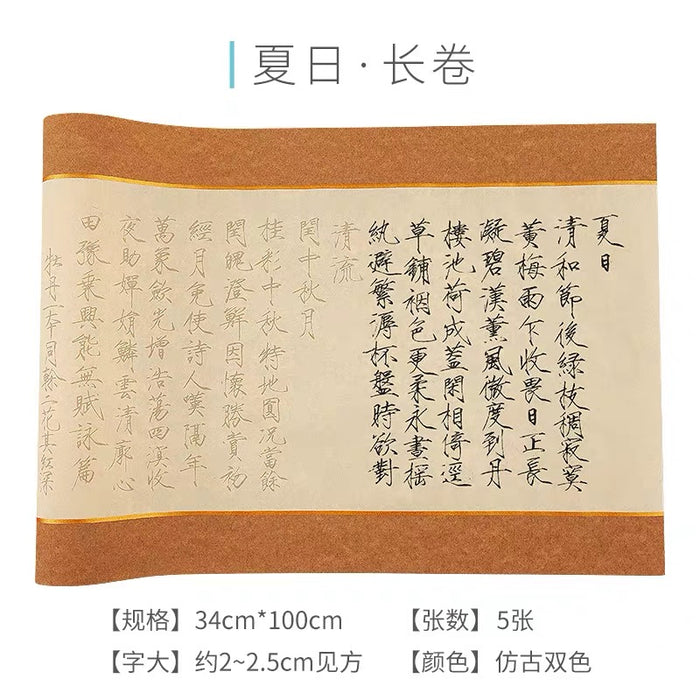 夏日·长卷
夏日
清和節後緑枝稠寂寞
黃梅雨乍收畏日正長
凝碧漢薰風微度到丹
樓池荷成蓋閑相倚逕
草鋪裀色更柔永晝搖
紈避繁溽杯盤時欲對
清流
閏中秋月
桂彩中秋特地圓况當餘
閏魄澄鮮因懷勝賞初
經月免使詩人嘆隔年
萬象斂光增浩蕩四溟收
夜助嬋娟鱗雲清廓心
田豫乘興能無賦詠篇
牡丹一本同幹二花其紅深
【规格】34cm*100cm
【张数】5张
【字大】约2~2.5cm见方
【颜色】仿古双色